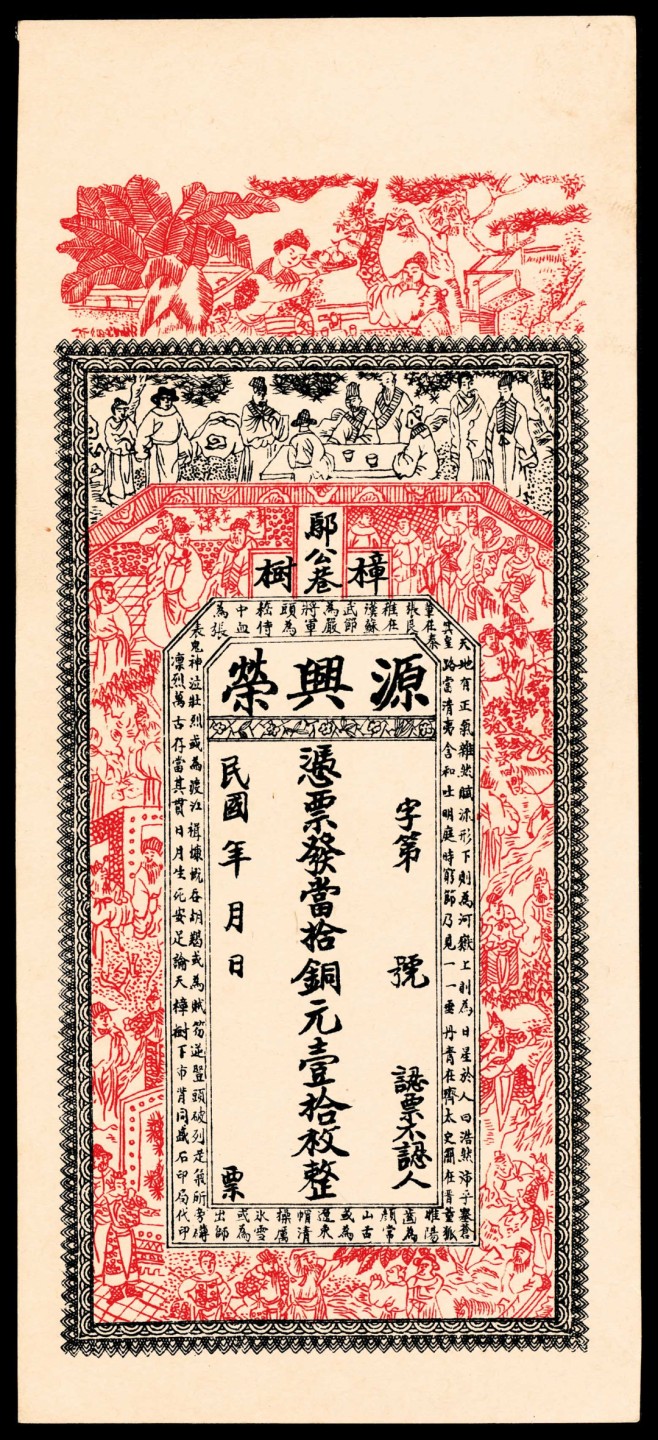 公巷
樟樹
源興榮
字第 號
認票不認人
憑票發當拾銅元壹拾枚整
民國 年 月 日 票
天地有正氣雜然賦流形下則為河嶽上則為日星於人曰浩然沛乎塞蒼
冥皇路當清夷含和吐明庭時窮節乃見一一垂丹青在齊太史簡在晉董狐
筆在秦張良椎在漢蘇武節為嚴將軍頭為嵇侍中血為張
睢陽齒為顏常山舌或為遼東帽清操厲冰雪或為出師
表鬼神泣壯烈或為渡江楫慷慨吞胡羯或為賊笏逆豎頭破列是氣所旁礴
凛烈萬古存當其貫日月生死安足論天樟樹下市背同盛石印局代印